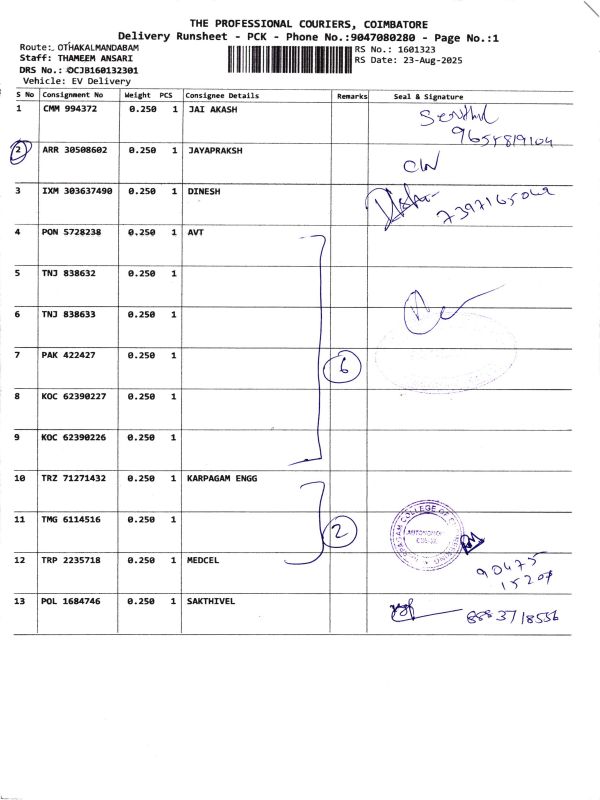 THE PROFESSIONAL COURIERS, COIMBATORE
Delivery Runsheet - PCK - Phone No.:9047080280 - Page No.:1
Route: OTHAKALMANDABAM
RS No.: 1601323
Staff: THAMEEM ANSARI
RS Date: 23-Aug-2025
DRS No.: OCJB160132301
Vehicle: EV Delivery
S No Consignment No Weight PCS Consignee Details Remarks Seal & Signature
1 CMM 994372 0.250 1 JAI AKASH
2 ARR 30508602 0.250 1 JAYAPRAKSH
3 IXM 303637490 0.250 1 DINESH
4 PON 5728238 0.250 1 AVT
5 TNJ 838632 0.250 1
6 TNJ 838633 0.250 1
7 PAK 422427 0.250 1 6
8 KOC 62390227 0.250 1
9 KOC 62390226 0.250 1
10 TRZ 71271432 0.250 1 KARPAGAM ENGG
11 TMG 6114516 0.250 1 2
12 TRP 2235718 0.250 1 MEDCEL
90475
15207
13 POL 1684746 0.250 1 SAKTHIVEL